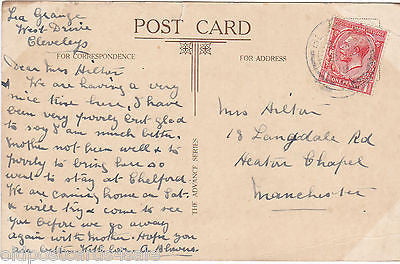 Lea Grange
West Drive
Cleveleys
POST CARD
FOR CORRESPONDENCE
FOR ADDRESS
Dear Mrs Hilton
We are having a very
nice time here, I have
been very poorly but glad
to say I am much better.
Mother not been well & to
poorly to bring here so
went to stay at Chelford.
We are coming home on Sat-
& will try & come to see
you before we go away
again with Mother. Hope you
are better. With love. A.
Mrs Hilton
18 Langdale Rd
Heaton Chapel
Manchester
THE ADVANCE SERIES